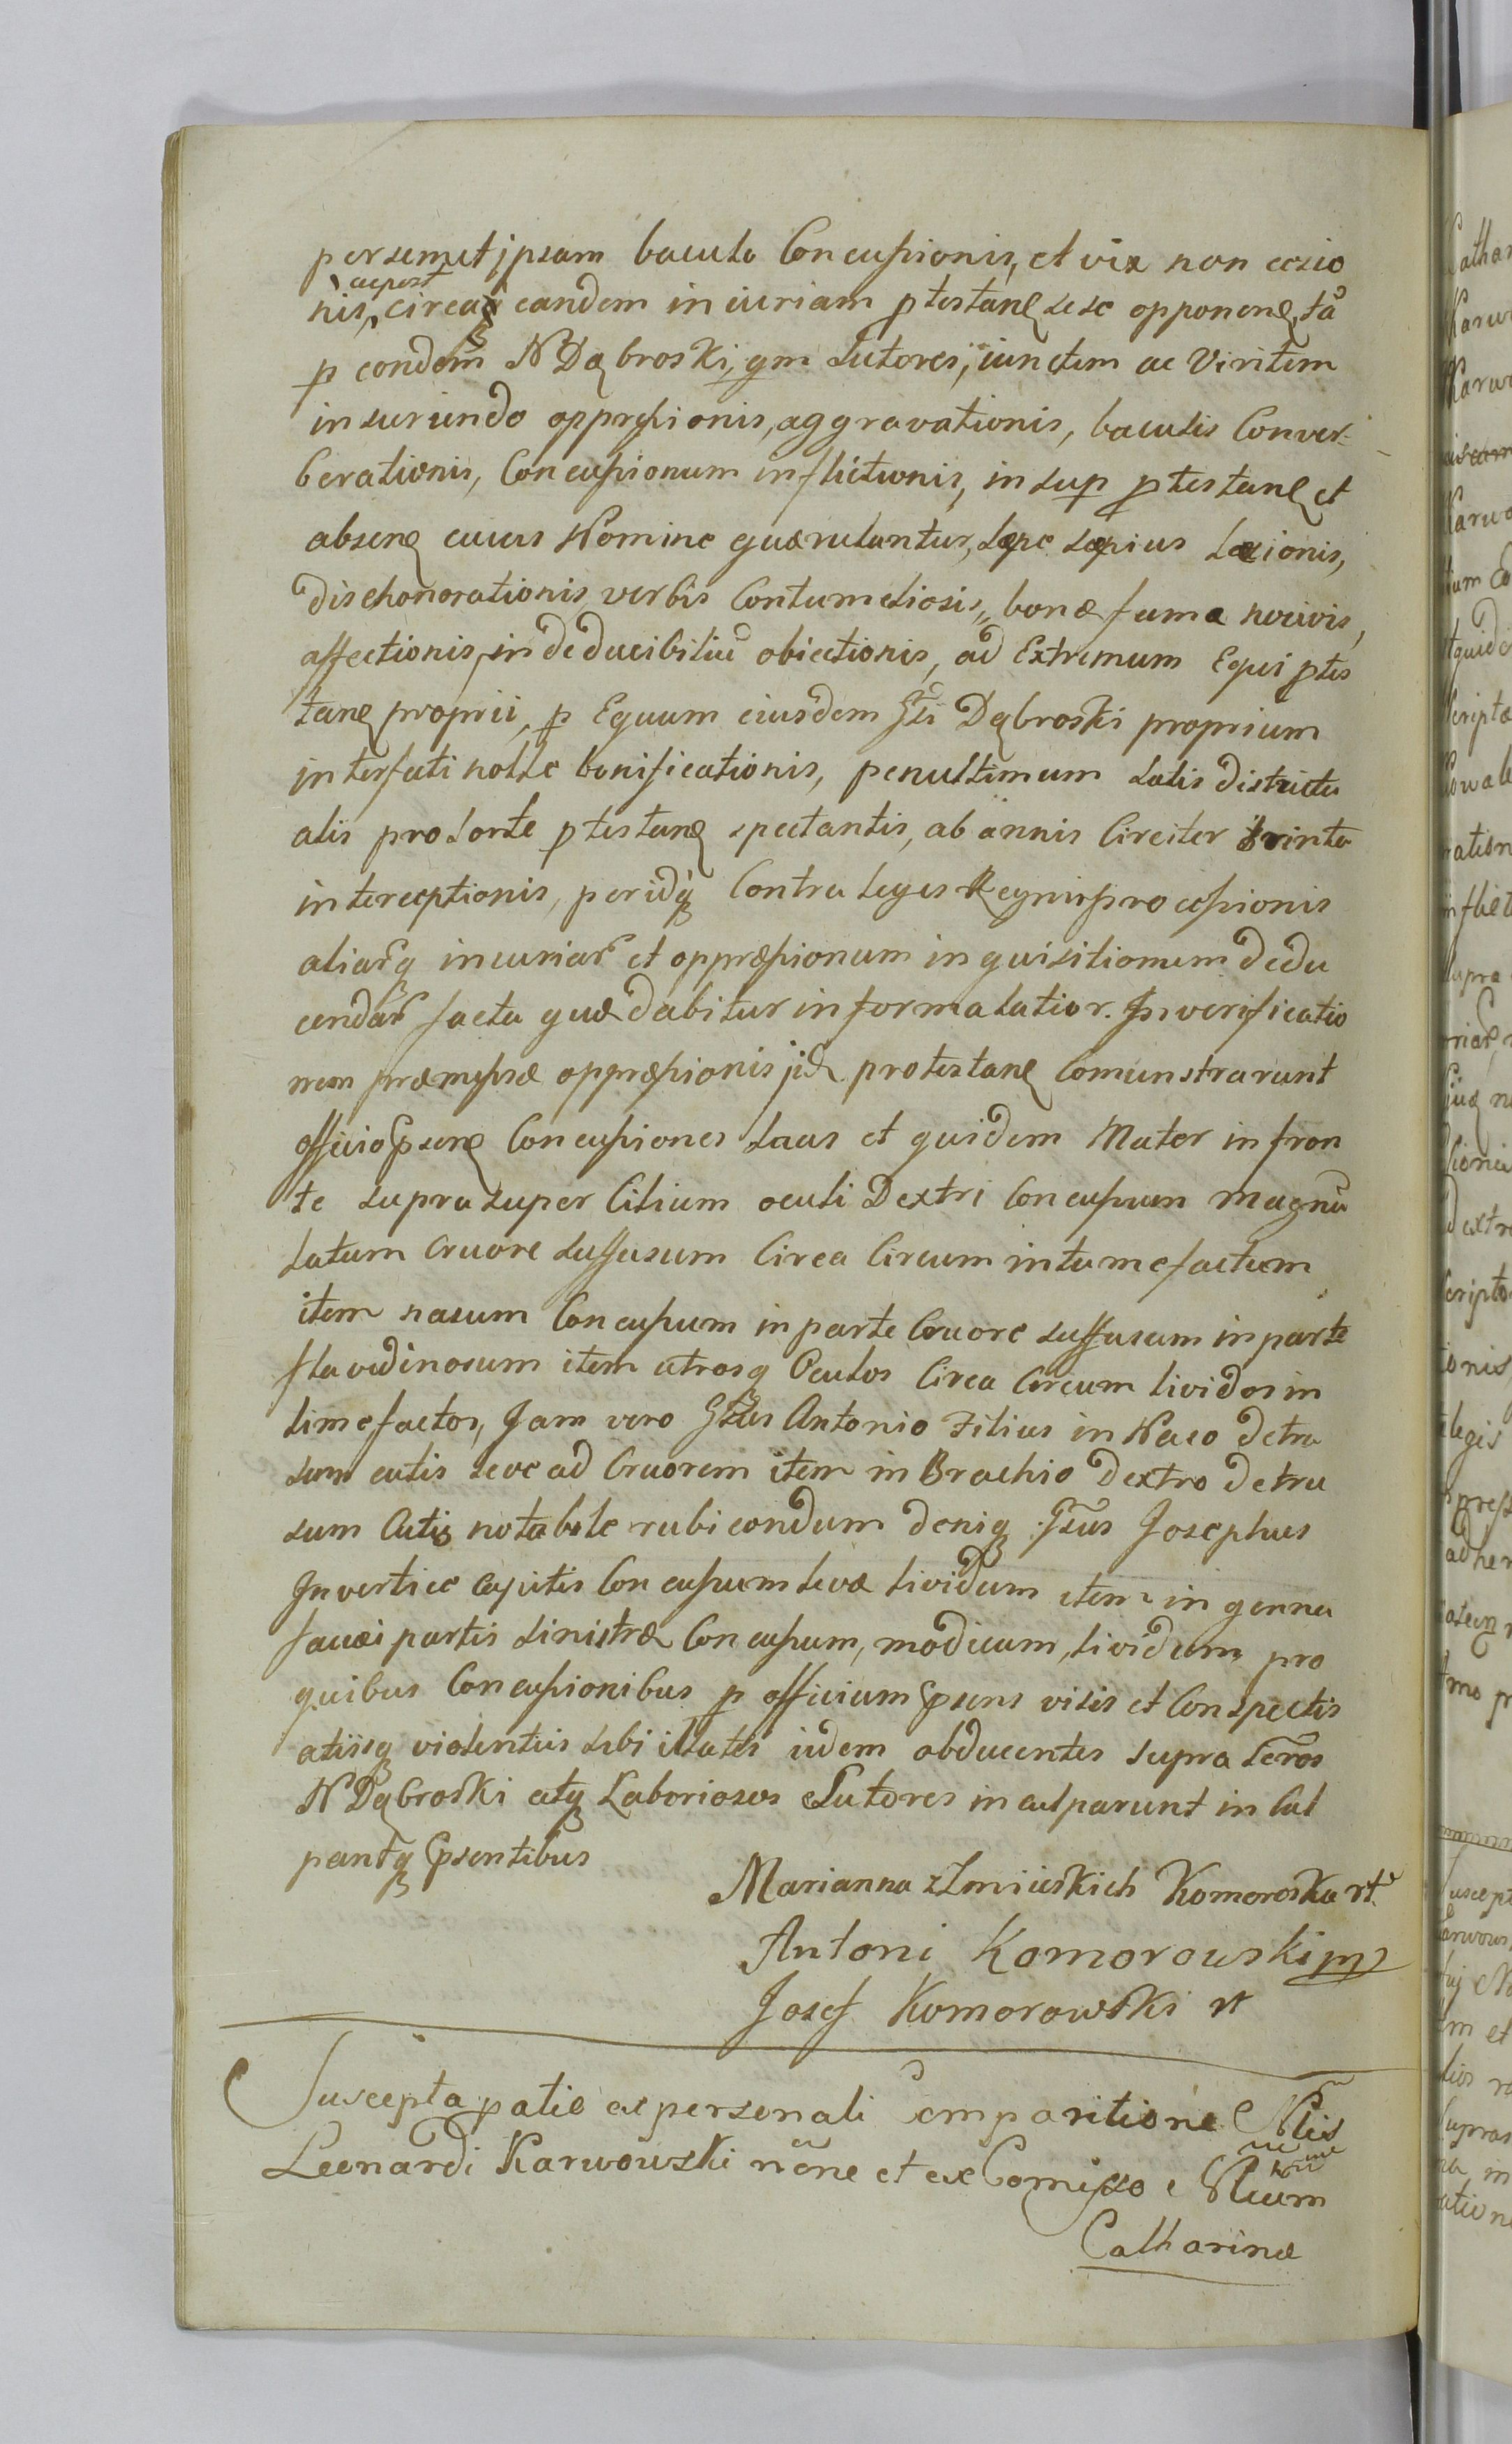 persemet ipsam baculo Concussionis, et vix non occisio
ac post
nis, circa eandem iniuriam ptestanę sese opponenę, tā
p eundem N Dąbroski, qm Sutores, iunctim ac Viritim
insuriendo oppressionis, aggravationis, baculis Conver-
berationis, Concussionum inflictionis, insup ptestanę et
absenę cuius Nomine quærulantur, sæpe sæpius Læsionis,
dishonorationis verbis Contumeliosis, bonæ famæ nocivis,
affectionis, in deducibiliū obiectionis, ad Extremum Equi ptes
tanę proprii, p Equum eiusdem Gsi Dąbroski proprium
interfecti nolle bonificationis, penultimum Salis districtu
alis pro Sorte ptestanę spectantis, ab annis Circiter trinta
interceptionis, peridq Contra leges Regni processionis
aliarq iniuriar et oppræssionum inquisitionem dedu
cendar facta quæ dabitur informa latior. In verificatio
nem præmissæ oppræssionis iid protestanę Comonstrarunt
officio psenę Concussiones suas et quidem Mater in fron
te supra super Cilium oculi Dextri Concussum magnū
Latum Cruore suffusum Circa Circum intumefactum
item nasum Concussum in parte Cruore suffusum in parte
flavedinosum item utrosq Oculos Circa Circum lividos in
timefactos, Jam vero Gsus Antonio Filius in Naso detru
sum cutis seve ad Cruorem item in Brachio dextro detru
sum Cutis notabile rubicondum deniq Gsus Josephus
In vertice Capitis Concussum leve lividum item in genna
faucei partis sinistræ Concussum, modicum, lividum pro
quibus Concussionibus p officium psens visis et Conspectis
aliisq violentiis sibi illatis iidem obducentes supra Scros
N Dąbroski atq Laboriosos Sutores inculparunt incul
pantq psentibus
Marianna z Zmiiskich Komoroska rt
Antoni Komorowski mp
Josef Komorowski rt
Suscepta ptatio ex personali Comparitione Nlis
Leonardi Karwowski nōne et ex Comisso Nlium
Catharinæ